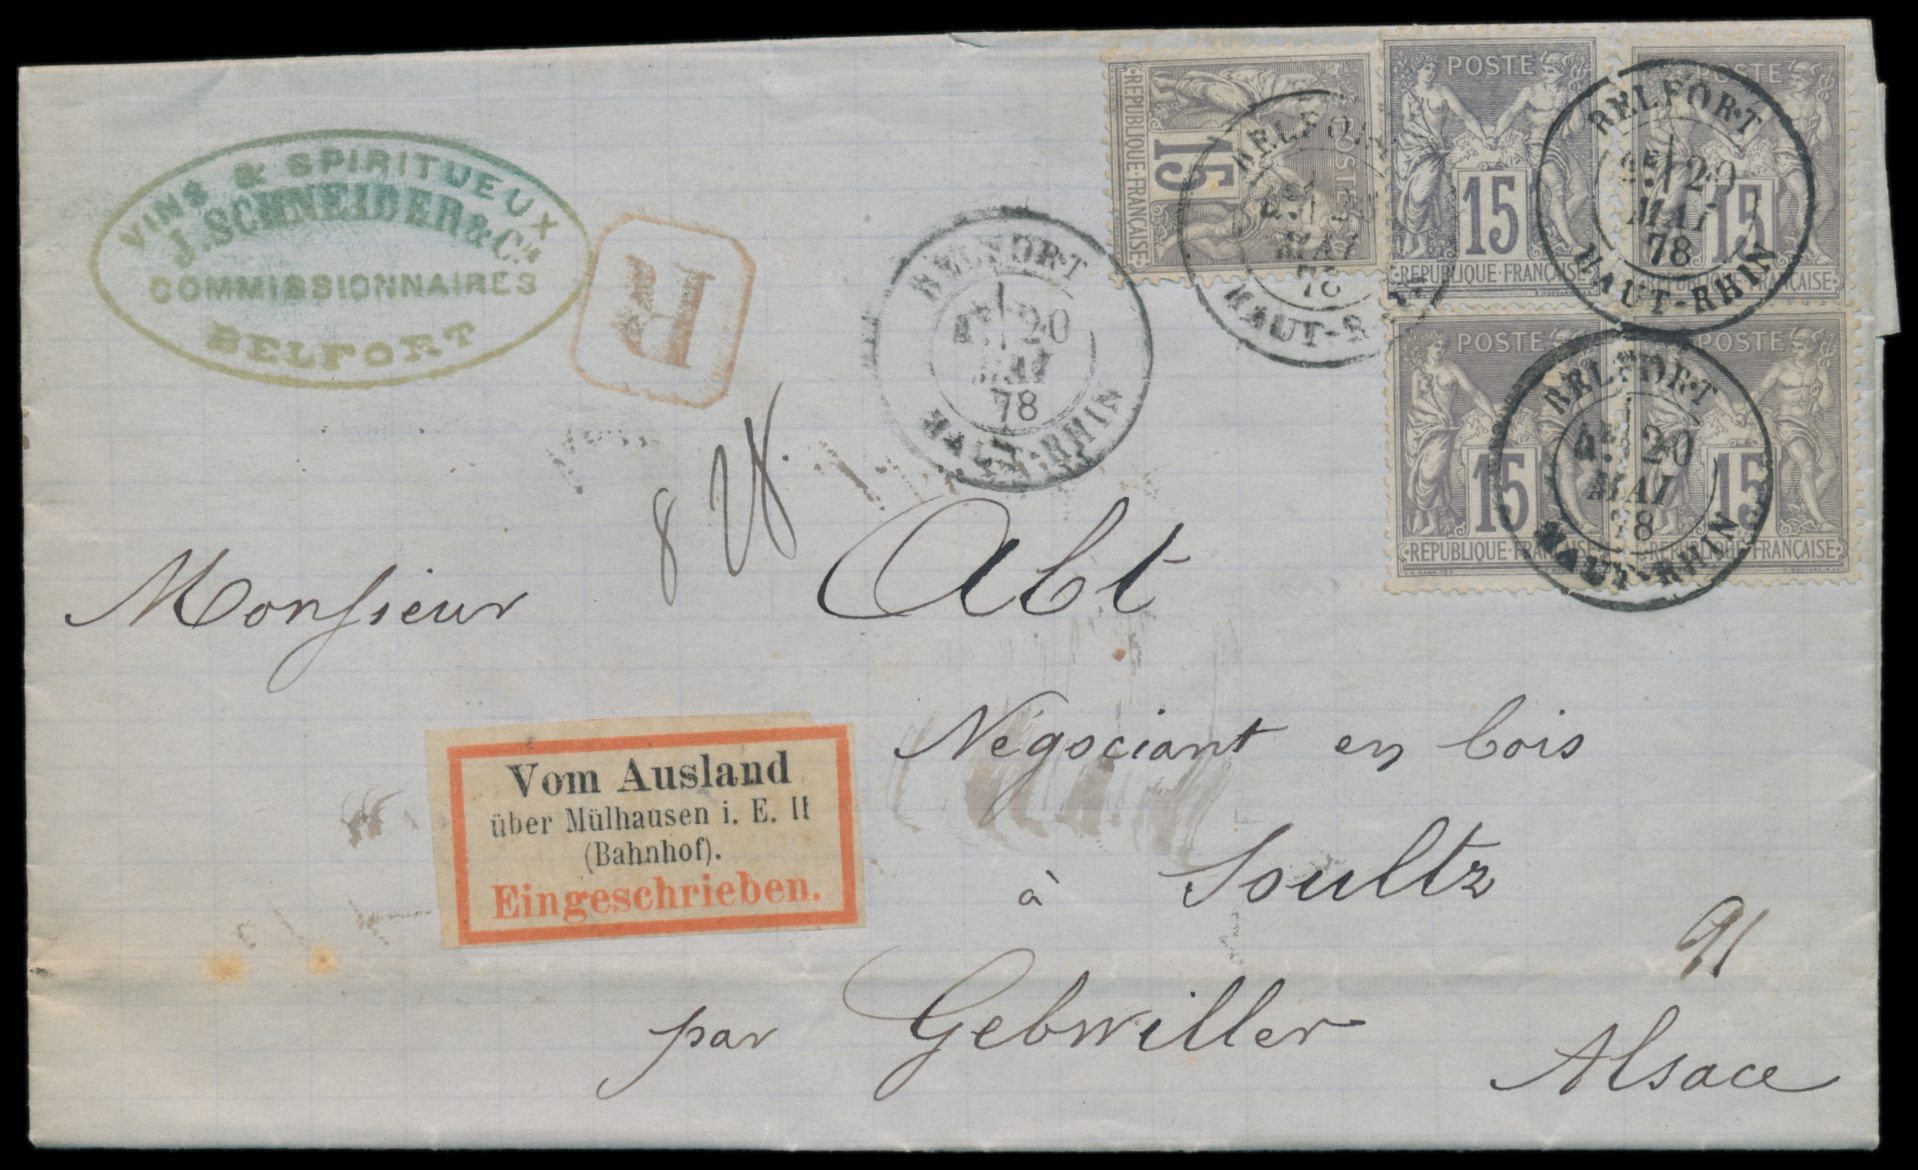 VINS & SPIRITUEUX
J. SCHNEIDER & Cie
COMMISSIONNAIRES
BELFORT
R
BELFORT
20
MAI
78
HAUT-RHIN
POSTE
15
RÉPUBLIQUE·FRANÇAISE
BELFORT
MAI
78
HAUT-RHIN
POSTE
15
RÉPUBLIQUE·FRANÇAISE
POSTE
15
RÉPUBLIQUE·FRANÇAISE
BELFORT
20
MAI
78
HAUT-RHIN
POSTE
15
RÉPUBLIQUE·FRANÇAISE
POSTE
15
RÉPUBLIQUE·FRANÇAISE
BELFORT
20
MAI
78
HAUT-RHIN
8
Monsieur Abt
Négociant en bois
à Soultz
91
par Gebwiller
Alsace
Vom Ausland
über Mülhausen i. E. II
(Bahnhof).
Eingeschrieben.